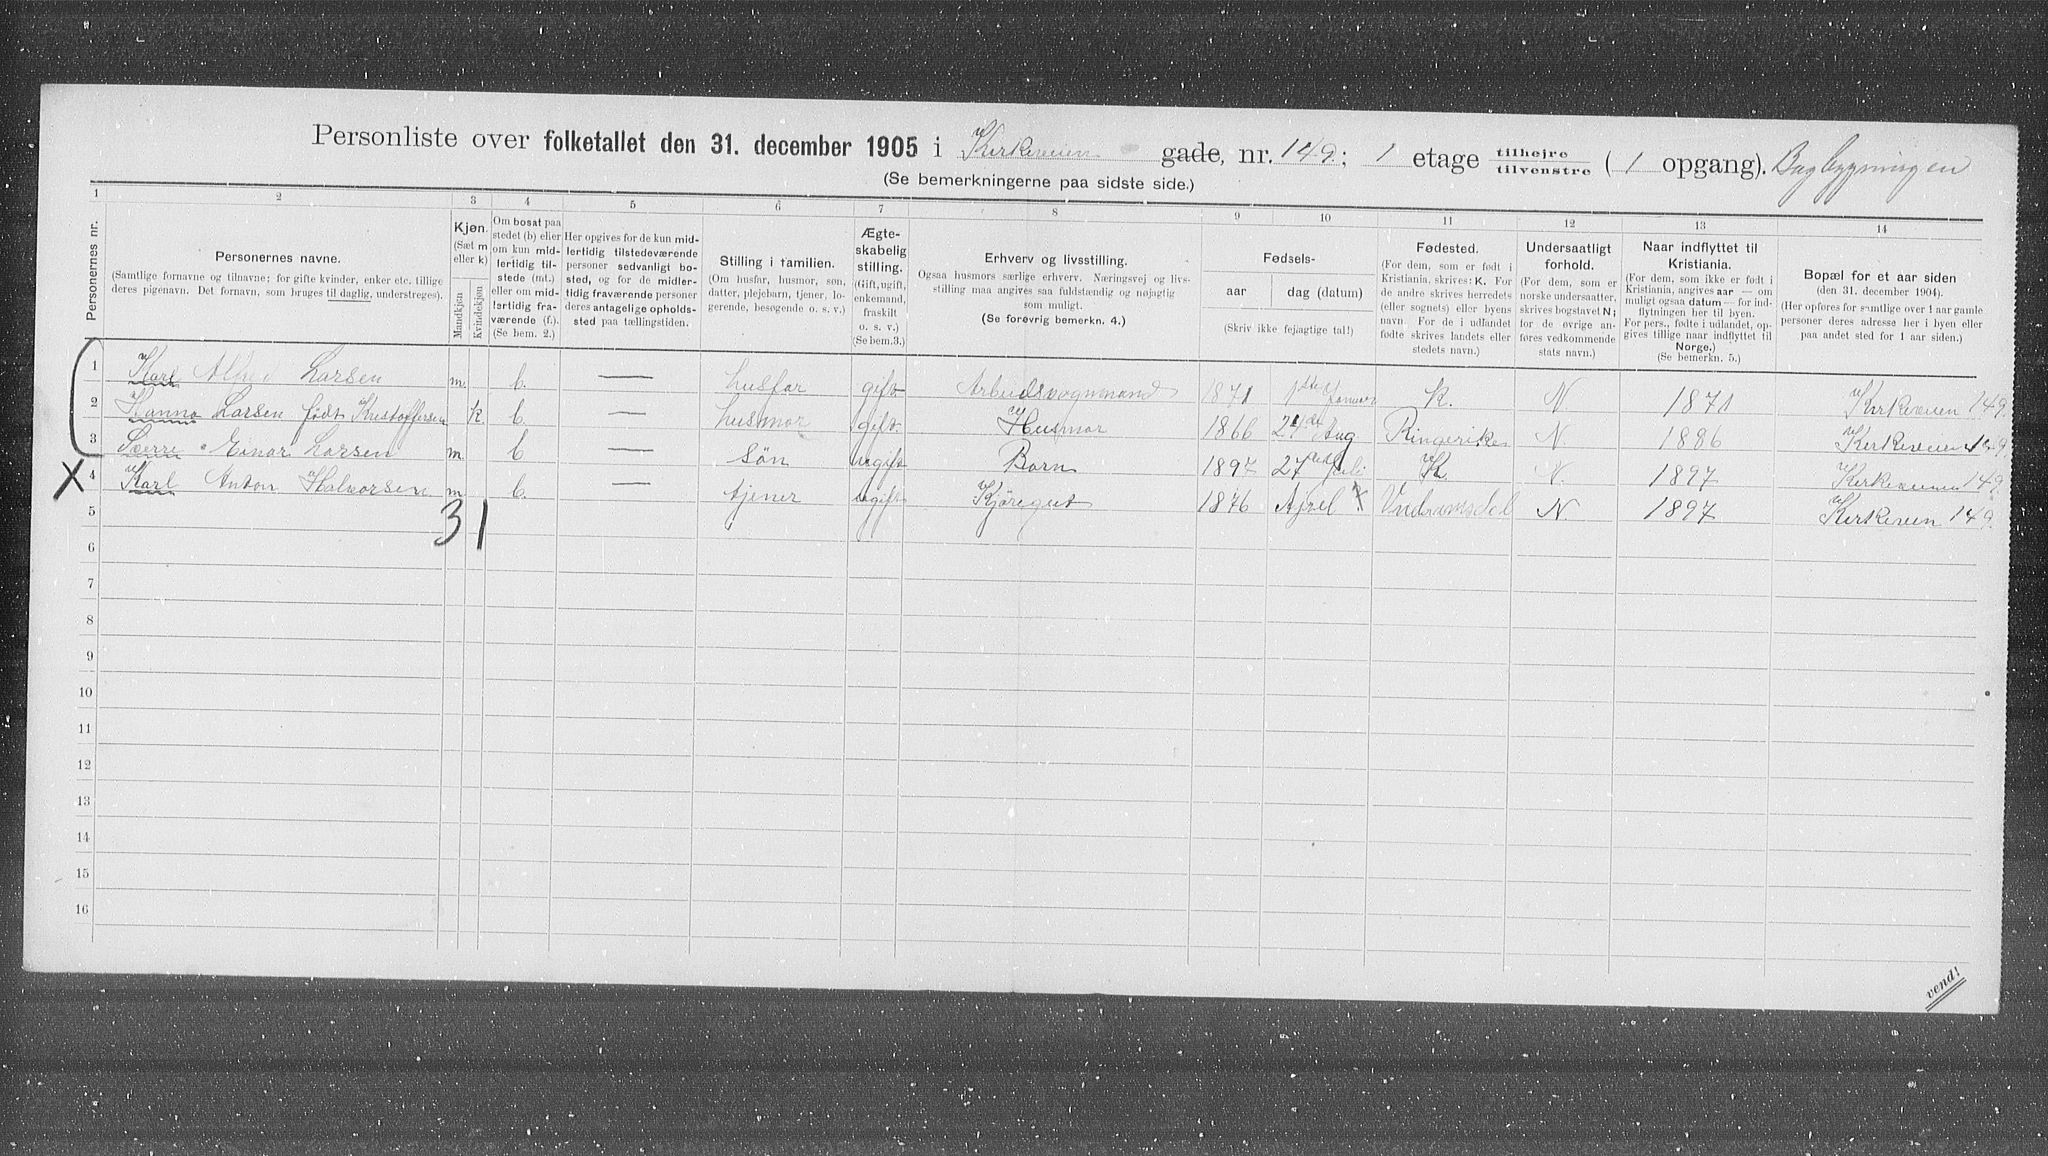 Personliste over folketallet den 31. december 1905 i Kirkeveien gade, nr. 149; 1 etage tilhøjre tilvenstre (1 opgang). Bagbygningen
(Se bemerkningerne paa sidste side.)
1 2 3 4 5 6 7 8 9 10 11 12 13 14
Personernes nr.
Personernes navne.
(Samtlige fornavne og tilnavne; for gifte kvinder, enker etc. tillige
deres pigenavn. Det fornavn, som bruges til daglig, understreges).
Kjøn.
(Sæt m
eller k)
Mandkjøn
Kvindekjøn
Om bosat paa
stedet (b) eller
om kun mid-
lertidig til-
stede (mt.)
eller om mid-
lertidig fra-
værende (f.).
(Se bem. 2.)
Her opgives for de kun mid-
lertidig tilstedeværende
personer sedvanligt bo-
sted, og for de midler-
tidig fraværende personer
deres antagelige opholds-
sted paa tællingstiden.
Stilling i familien.
(Om husfar, husmor, søn,
datter, plejebarn, tjener, lo-
gerende, besøgende o. s. v.)
Ægte-
skabelig
stilling.
(Gift, ugift,
enkemand,
fraskilt
o. s. v.)
(Se bem.3.)
Erhverv og livsstilling.
Ogsaa husmors særlige erhverv. Næringsvej og livs-
stilling maa angives saa fuldstændig og nøjagtig
som muligt.
(Se forøvrig bemerkn. 4.)
Fødsels-
aar
dag (datum)
(Skriv ikke fejagtige tal!)
Fødested.
(For dem, som er født i
Kristiania, skrives: K. For
de andre skrives herredets
(eller sognets) eller byens
navn. For de i udlandet
fødte skrives landets eller
stedets navn.)
Undersaatligt
forhold.
(For dem, som er
norske undersaatter,
skrives bogstavet N;
for de øvrige an-
føres vedkommende
stats navn.)
Naar indflyttet til
Kristiania.
(For dem, som ikke er født i
Kristiania, angives aar — om
muligt ogsaa datum — for ind-
flytningen her til byen.
For pers., fødte i udlandet, op-
gives tillige naar indflyttet til
Norge.)
(Se bemerkn. 5.)
Bopæl for et aar siden
(den 31. december 1904).
(Her opføres for samtlige over 1 aar gamle
personer deres adresse her i byen eller
paa andet sted for 1 aar siden.)
1 Karl Alfred Larsen m. b. — husfar gift Arbeidsvognmand 1871 1ste Januar K. N 1871 Kirkeveien 149.
2 Hanna Larsen født Kristoffersen k. b. — husmor gift. Husmor 1866 24de Aug Ringerike N. 1886 Kirkeveien 149
3 Sverre Einar Larsen m. b — søn ugift Barn 1897 27de Juli K. N. 1897 Kirkeveien 149.
X 4 Karl Anton Halvorsen m. b. — tjener ugift Kjøregut 1876 April X N 1897 Kirkeveien 149.
5 3 1
6
7
8
9
10
11
12
13
14
15
16
vend!